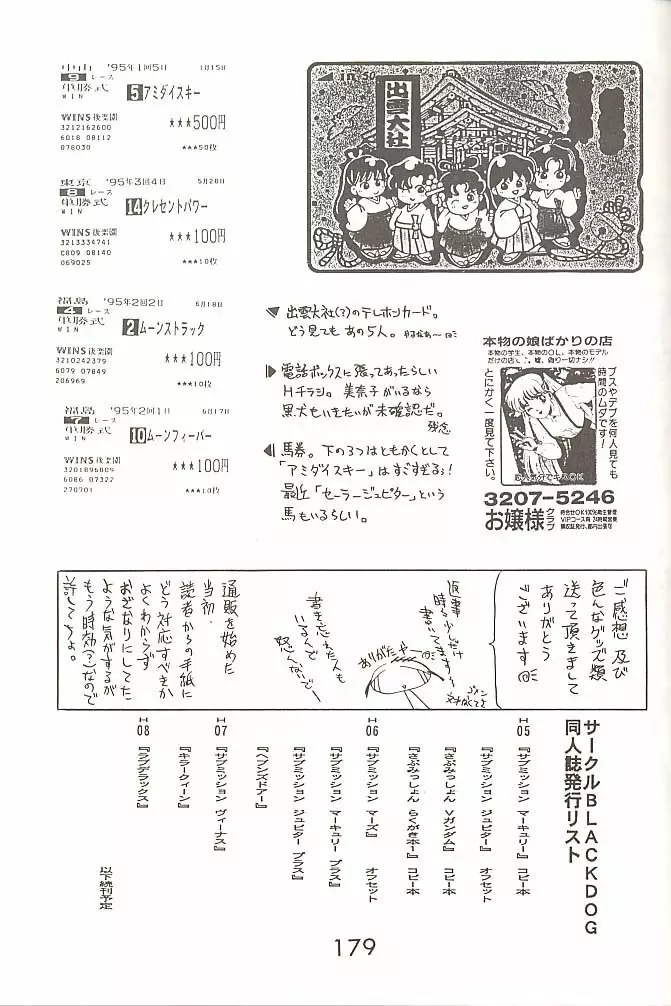 中山 '95年1回5日 1月15日
9 レース
単勝式 5 アミダイスキー
WIN
WINS後楽園 ★★★500円
3212162600
6018 08112
078030 ★★★50枚
東京 '95年3回4日 5月28日
8 レース
単勝式 14 クレセントパワー
WIN
WINS後楽園 ★★★100円
3213334741
C809 08140
069025 ★★★10枚
福島 '95年2回2日 6月18日
4 レース
単勝式 2 ムーンストラック
WIN
WINS後楽園 ★★★100円
3210242379
6079 07849
206969 ★★★10枚
福島 '95年2回1日 6月17日
7 レース
単勝式 10 ムーンフィーバー
WIN
WINS後楽園 ★★★100円
3201896809
6086 07322
270701 ★★★10枚
50
出雲大社
出雲大社(?)のテレホンカード。
どう見てもあの5人。やるなぁ〜
電話ボックスに張ってあったらしい
Hチラシ。美奈子がいるなら
黒犬もいきたいが未確認だ。
残念
馬券。下の3つはともかくとして
「アミダイスキー」はすごすぎるぅ!
最近「セーラージュピター」という
馬もいるらしい。
本物の娘ばかりの店
本物の学生、本物のOL、本物のモデル
だけの店です。嘘、偽り一切ナシ!!
ブスやデブを何人見ても
時間のムダです!
とにかく一度見て下さい。
恋人気分でキスOK
3207-5246
お嬢様クラブ
待合せOK100%衛生管理
VIPコース有 24時間営業
領収証発行、都内出張可
ご感想 及び
色んなグッズ類
送って頂きまして
ありがとう
ございます
返事
時々少しだけ
書いてますヨ
ありがたや
書き忘れた人も
いるくて
怒んないでー
通販を始めた
当初、
読者からの手紙に
どう対応すべきか
よくわからず
おざなりにしてた
ような気がするが
もう時効(?)なので
許してちょ。
サークルBLACKDOG
同人誌発行リスト
H05 『サブミッション マーキュリー』 コピー本
『サブミッション ジュピター』 オフセット
『さぶみっしょん Vガンダム』 コピー本
『さぶみっしょん らくがきホー』 コピー本
H06 『サブミッション マーズ』 オフセット
『サブミッション マーキュリー プラス』
『サブミッション ジュピター プラス』
『ヘブンズドアー』
H07 『サブミッション ヴィーナス』
『キラークィーン』
H08 『ラブデラックス』
以下続刊予定
179